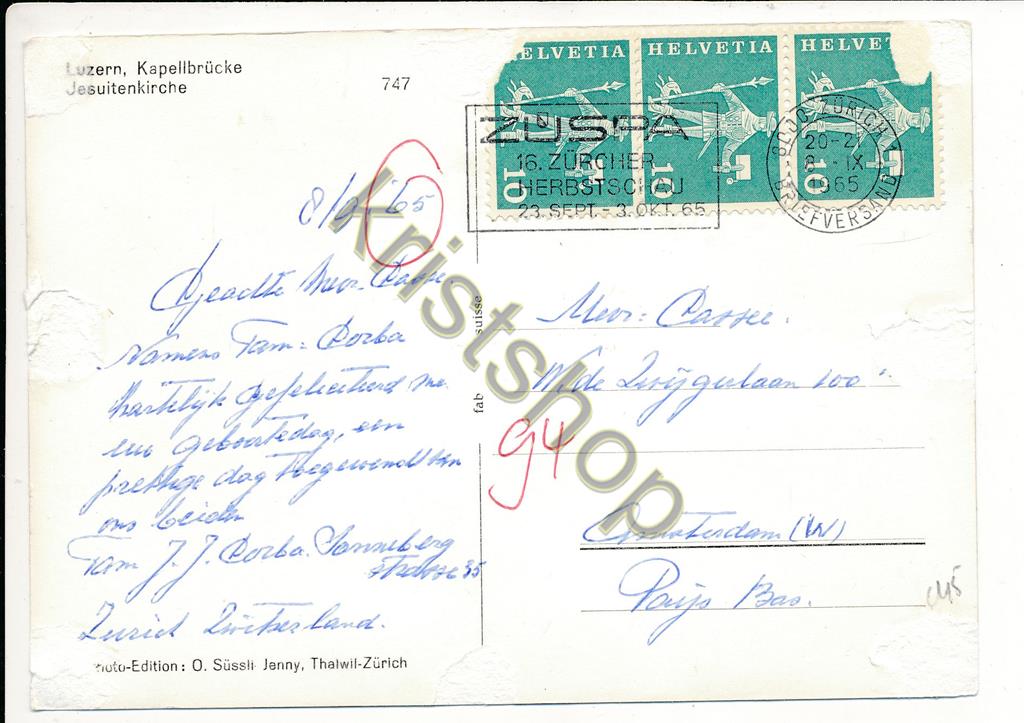 Luzern, Kapellbrücke
Jesuitenkirche
747
HELVETIA HELVETIA HELVET
10 10 10
ZÜSPA
16. ZÜRCHER
HERBSTSCHAU
23. SEPT. - 3. OKT. 65
8000 ZÜRICH 1
20-2
8 - IX
1965
BRIEFVERSAND
8/9. 65
Geachte Mevr. Cassee
Namens Fam: Dorba
hartelijk gefeliciteerd me
uw geboortedag, een
prettige dag toegewenscht van
ons beiden
Fam J. J. Dorba. Sonneberg
strasse 35
Zurich Zwitserland.
Photo-Edition: O. Süssli Jenny, Thalwil-Zürich
fab suisse
Mevr: Cassee.
Wde 100
94
Amsterdam (W)
Pays Bas.
kristshop